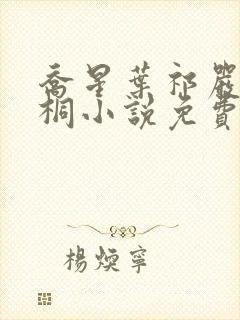 喬星葉祁嚴
桐小說免費
楊煥寧